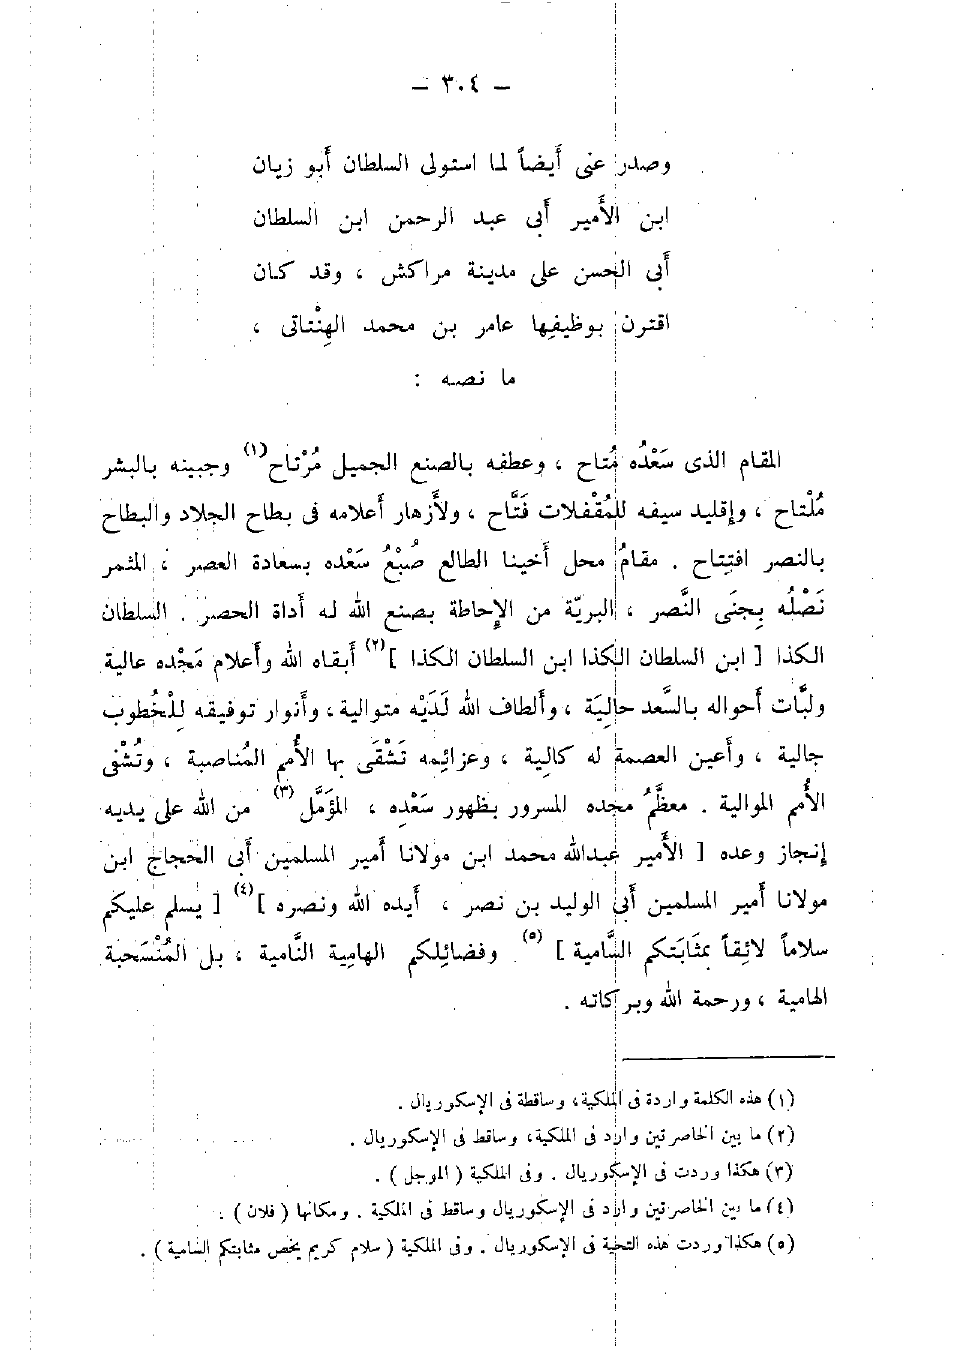 — ٣٠٤ —
وصدر عنى أيضاً لما استولى السلطان أبو زيان
ابن الأمير أبى عبد الرحمن ابن السلطان
أبى الحسن على مدينة مراكش ، وقد كان
اقترن بوظيفِها عامر بن محمد الهِنْتاتى ،
ما نصه :
المقام الذى سَعْدُه مُتاح ، وعطفه بالصنع الجميل مُرْتاح(١) وجبينه بالبشر
مُلْتاح ، وإقليد سيفه للمُقْفلات فَتَّاح ، ولأزهار أعلامه فى بطاح الجلاد والبطاح
بالنصر افتِتاح . مقامُ محل أخينا الطالع صُبْعُ سَعْده بسعادة العصر ، المثمر
نَصْلُه بِجنَى النَّصر ، البريّة من الإحاطة بصنع الله له أداة الحصر . السلطان
الكذا [ ابن السلطان الكذا ابن السلطان الكذا ](٢) أبقاه الله وأعلام مَجْده عالية
ولبَّات أحواله بالسَّعد حالِيَة ، وألطاف الله لَدَيْه متوالية ، وأنوار توفيقه لِلْخُطوب
جالية ، وأعين العصمة له كالية ، وعزائِمه تَشْقَى بها الأُمم المُناصبة ، وتُشْفى
الأُمم الموالية . معظَّمُ مجده المسرور بظهور سَعْدِه ، المؤَمَّل(٣) من الله على يديه
إنجاز وعده [ الأَمير عبدالله محمد ابن مولانا أمير المسلمين أبى الحجاج ابن
مولانا أمير المسلمين أبى الوليد بن نصر ، أيده الله ونصره ](٤) [ يسلم عليكم
سلاماً لائِقاً بمثابَتكم السَّامية ](٥) وفضائِلكم الهامِية النَّامية ، بل المُنْسَحبة
الهامية ، ورحمة الله وبركاته .
(١) هذه الكلمة واردة فى الملكية، وساقطة فى الإسكوريال .
(٢) ما بين الخاصرتين وارد فى الملكية، وساقط فى الإسكوريال .
(٣) هكذا وردت فى الإسكوريال . وفى الملكية ( الموجل ) .
(٤) ما بين الخاصرتين وارد فى الإسكوريال وساقط فى الملكية . ومكانها ( فلان ) .
(٥) هكذا وردت هذه التحية فى الإسكوريال . وفى الملكية ( سلام كريم يخص مثابتكم السامية ) .